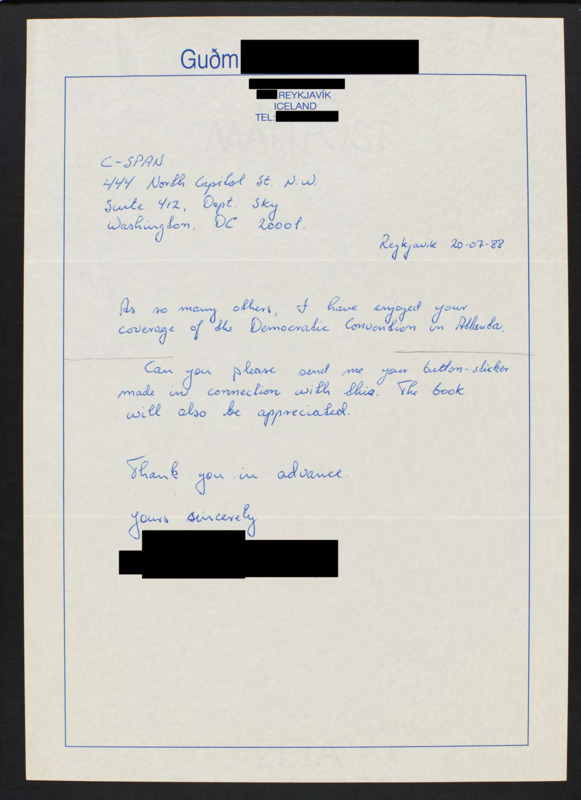 Guðm
REYKJAVÍK
ICELAND
TEL:
C-SPAN
444 North Capitol St. N.W.
Suite 412, Dept. Sky
Washington. DC 20001.
Reykjavik 20-07-88
As so many others, I have enjoyed your
coverage of the Democratic Convention in Atlanta.
Can you please send me your button-sticker
made in connection with this. The book
will also be appreciated.
Thank you in advance.
Yours sincerely